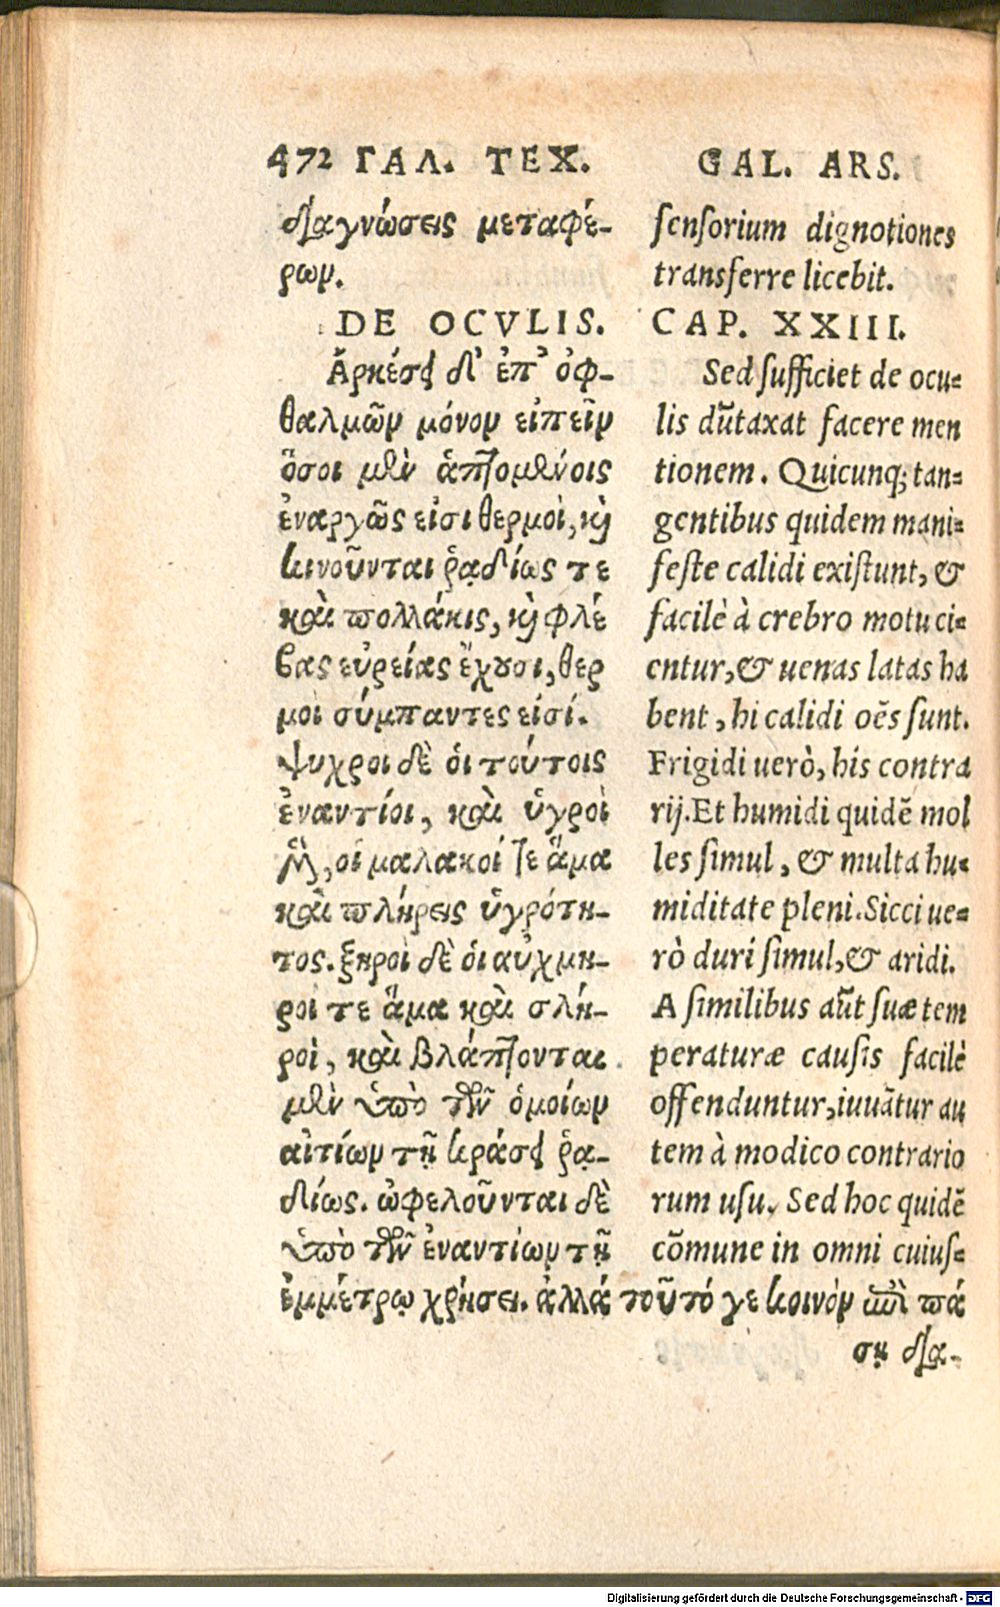 472 ΓΑΛ. ΤΕΧ.
διαγνώσεις μεταφέ-
ρων.
DE OCVLIS.
Ἀρκέσει δ' ἐπ' ὀφ-
θαλμῶν μόνον εἰπεῖν
ὅσοι μὲν ἁπτομένοις
ἐναργῶς εἰσι θερμοὶ, καὶ
κινοῦνται ῥᾳδίως τε
καὶ πολλάκις, καὶ φλέ
βας εὐρείας ἔχουσι, θερ
μοὶ σύμπαντες εἰσί.
Ψυχροι δὲ ὁι τούτοις
ἐναντίοι, καὶ ὑγροὶ
μὲν, οἱ μαλακοί τε ἅμα
καὶ πλήρεις ὑγρότη-
τος. ξηροὶ δὲ ὁι αὐχμη-
ροί τε ἅμα καὶ σλη-
ροὶ, καὶ βλάπτονται
μὲν ὑπὸ τῶν ὁμοίων
αἰτίων τῇ κράσει ῥᾳ-
δίως. ὠφελοῦνται δὲ
ὑπὸ τῶν ἐναντίων τῇ
ἐμμέτρῳ χρήσει. ἀλλά τοῦτό γε κοινὸν ἐπὶ πά
ση δια-
GAL. ARS.
sensorium dignotiones
transferre licebit.
CAP. XXIII.
Sed sufficiet de ocu-
lis dũtaxat facere men
tionem. Quicunq; tan-
gentibus quidem mani-
feste calidi existunt, &
facilè à crebro motu ci-
entur, & uenas latas ha
bent, hi calidi oẽs sunt.
Frigidi uerò, his contra
rij. Et humidi quidẽ mol
les simul, & multa hu-
miditate pleni. Sicci ue-
rò duri simul, & aridi.
A similibus aũt suæ tem
peraturæ causis facilè
offenduntur, iuuãtur au
tem à modico contrario
rum usu. Sed hoc quidẽ
cõmune in omni cuius-
Digitalisierung gefördert durch die Deutsche Forschungsgemeinschaft - DFG